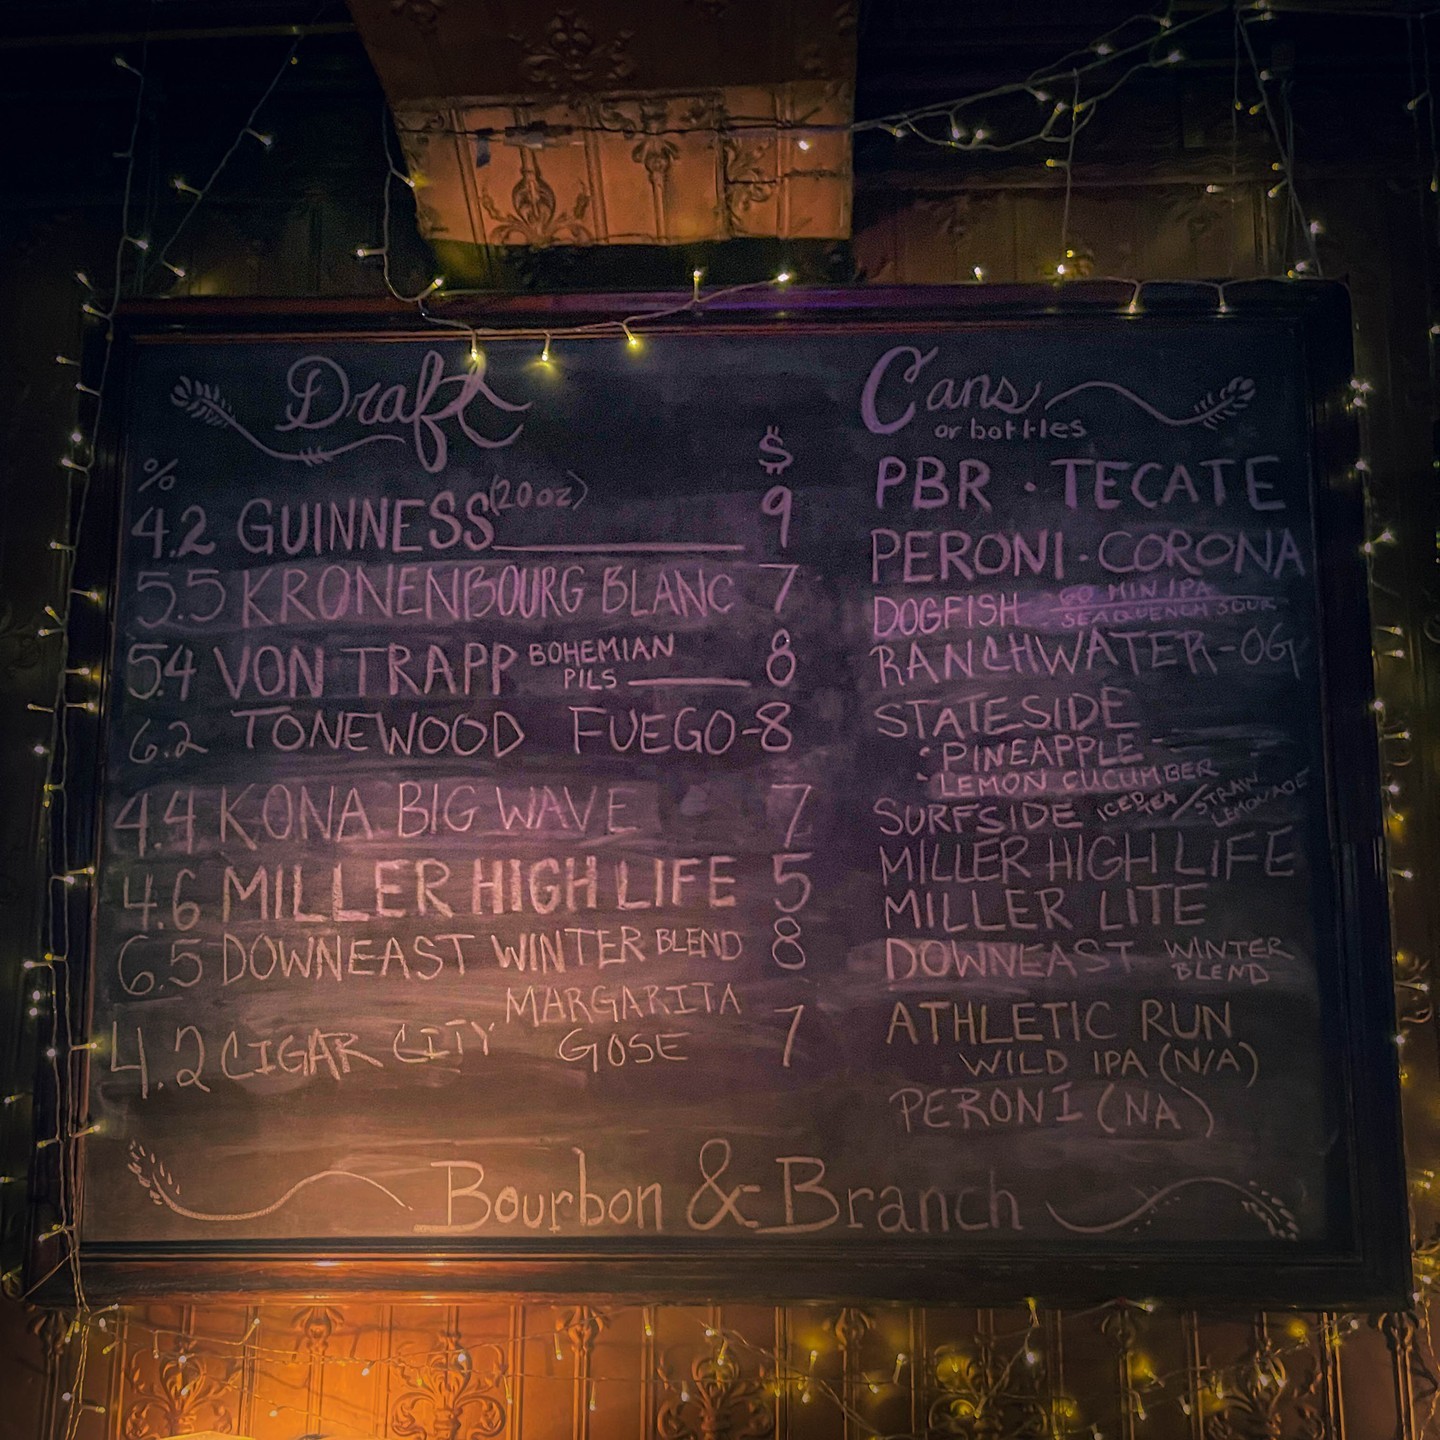 Draft
% $
4.2 GUINNESS (20oz) 9
5.5 KRONENBOURG BLANC 7
5.4 VON TRAPP BOHEMIAN
PILS 8
6.2 TONEWOOD FUEGO - 8
4.4 KONA BIG WAVE 7
4.6 MILLER HIGH LIFE 5
6.5 DOWNEAST WINTER BLEND 8
4.2 CIGAR CITY MARGARITA
GOSE 7
Cans
or bottles
PBR · TECATE
PERONI · CORONA
DOGFISH 60 MIN IPA
SEAQUENCH SOUR
RANCHWATER-OG
STATESIDE
· PINEAPPLE
· LEMON CUCUMBER
SURFSIDE ICED TEA / STRAW LEMONADE
MILLER HIGH LIFE
MILLER LITE
DOWNEAST WINTER
BLEND
ATHLETIC RUN
WILD IPA (N/A)
PERONI (NA)
Bourbon & Branch